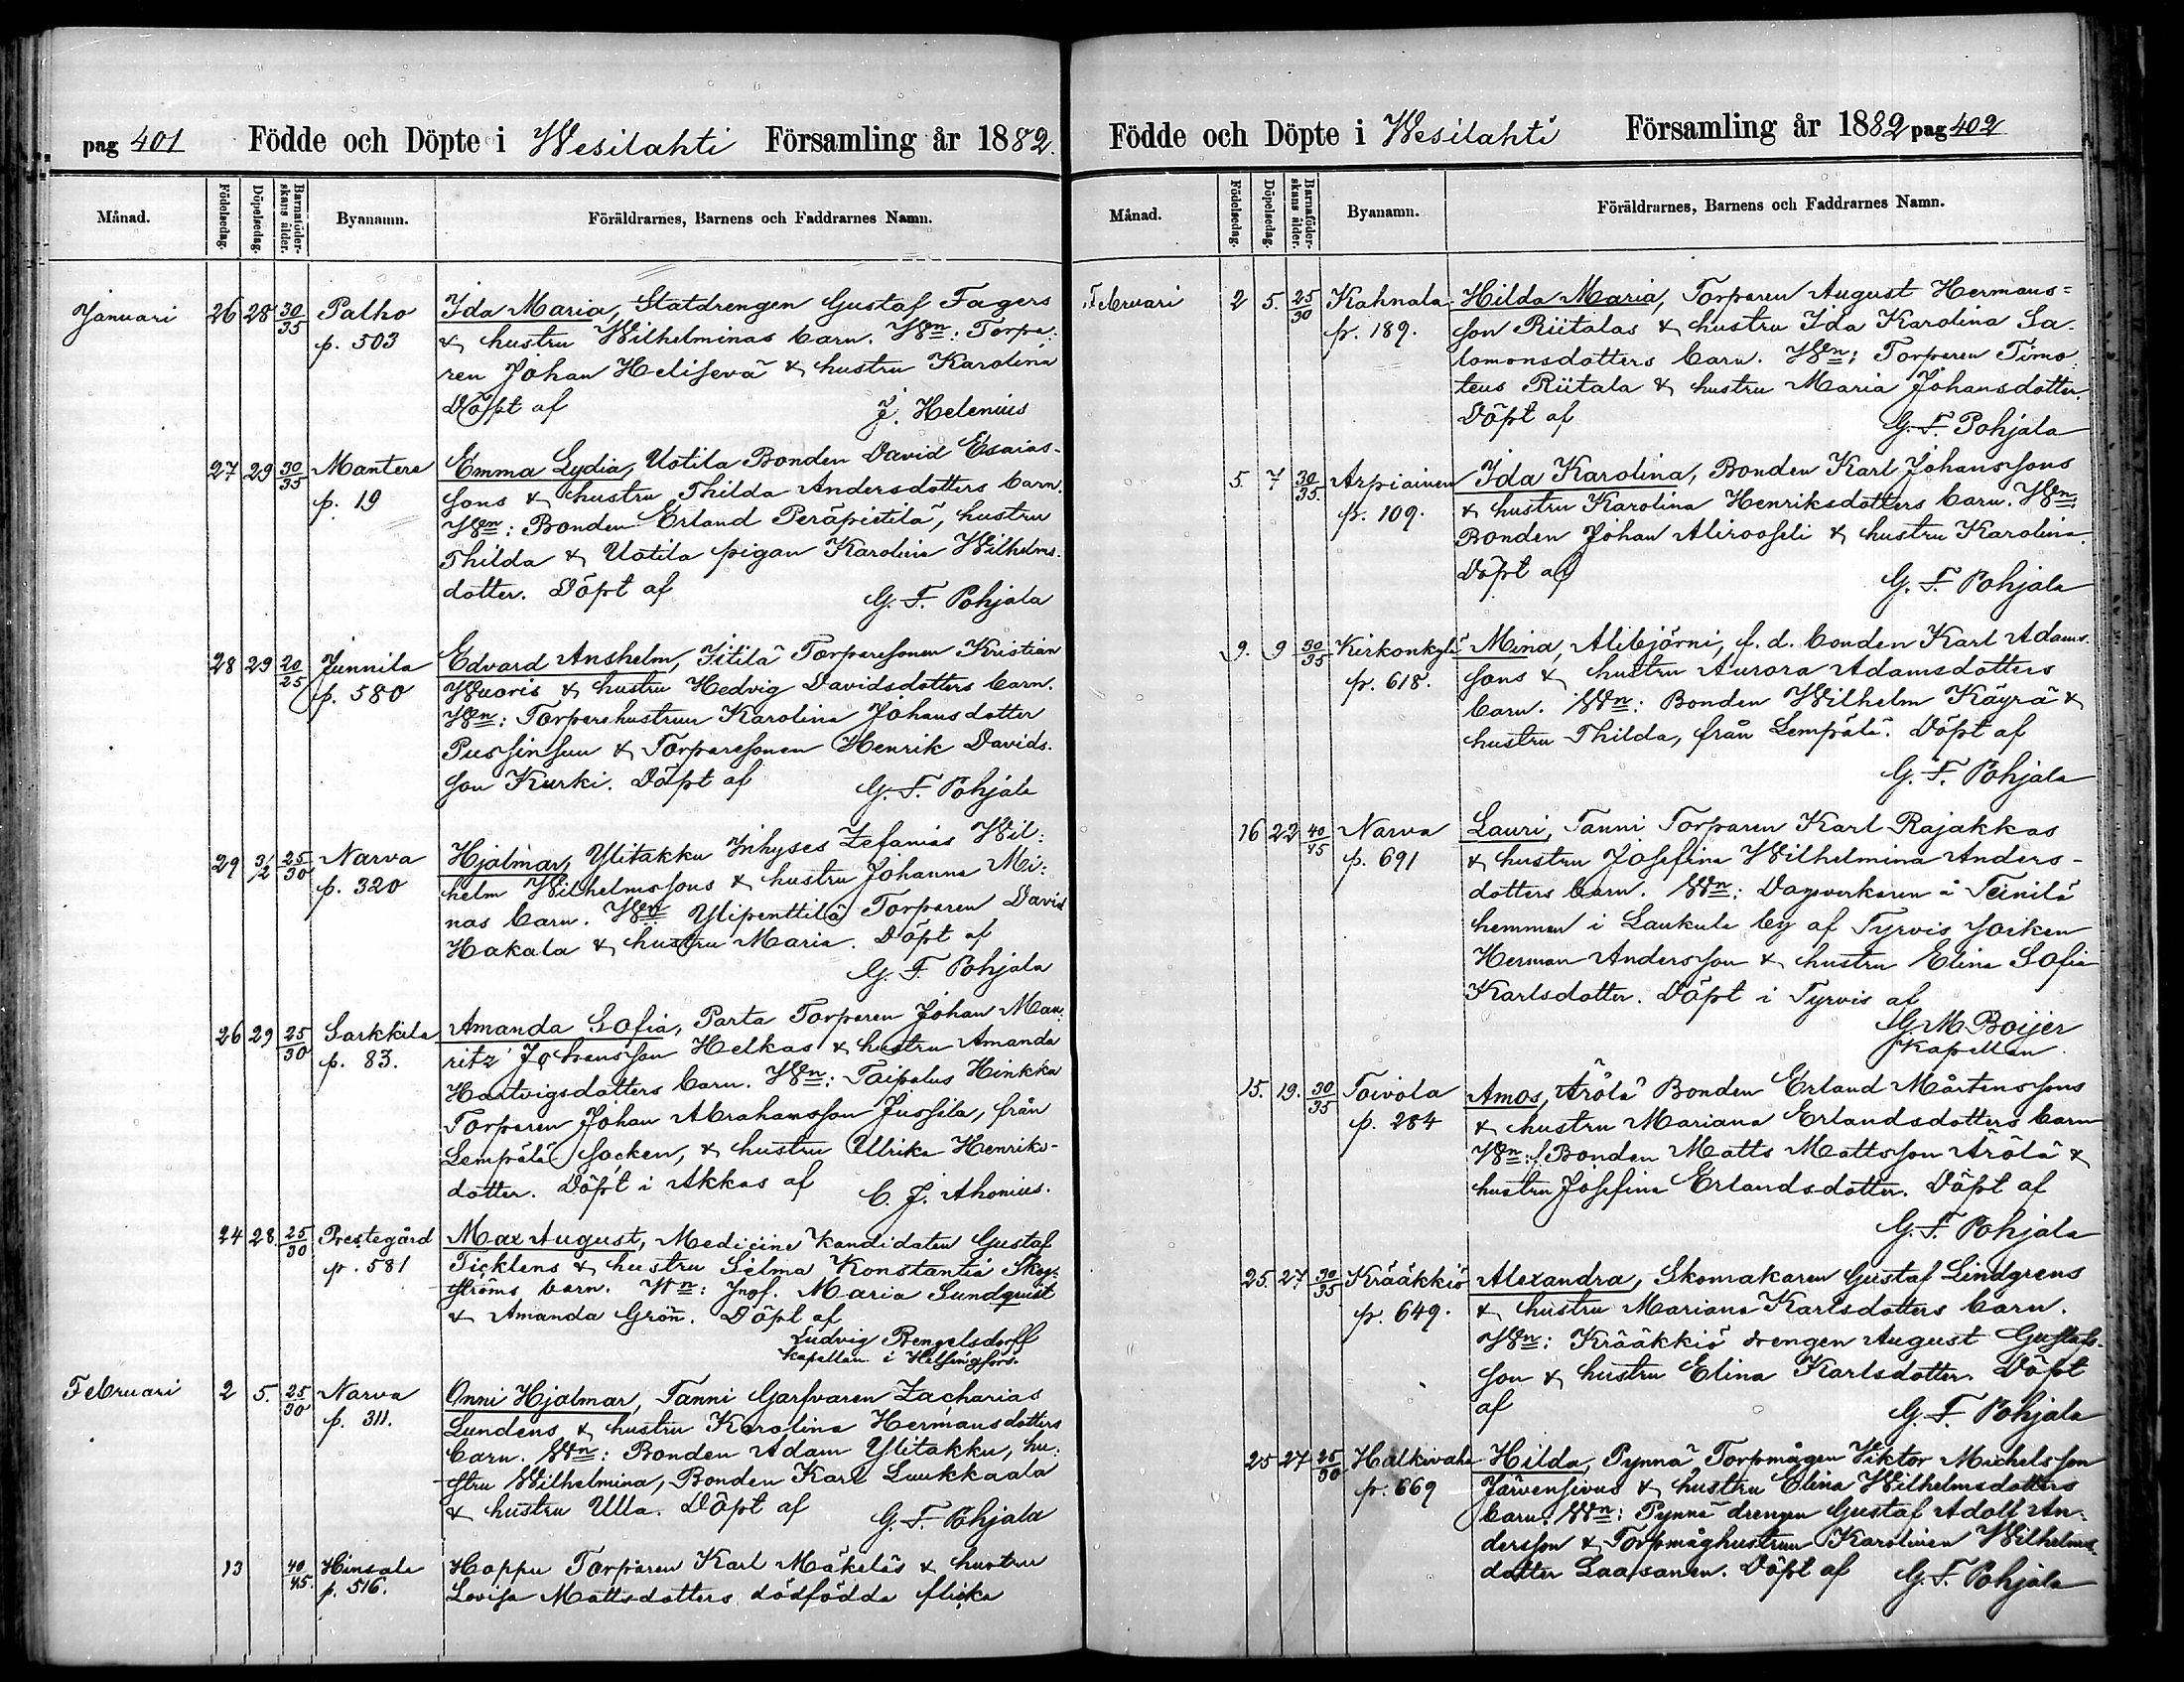 pag 401 Födde och Döpte i Wesilahti Församling år 1882.
Månad. Födelsedag. Döpelsedag. Barnaföderskans ålder. Byanamn. Föräldrarnes, Barnens och Faddrarnes Namn.
Januari 26 28 30/35 Palho Ida Maria, Statdrengen Gustaf Fagers
p. 503 & hustru Wilhelminas barn. Wn: Torpa-
ren Johan Helisevä & hustru Karolina
Döpt af J. Helenius
27 29 30/35 Mantere Emma Lydia, Uotila Bonden David Esaias-
p. 19 sons & hustru Thilda Andersdotters barn.
Wn: Bonden Erland Peräpietilä, hustru
Thilda & Uotila pigan Karolina Wilhelms-
dotter. Döpt af G. F. Pohjala
28 29 20/25 Junnila Edvard Anshelm, Iitilä Torparesonen Kristian
p. 580 Wuoris & hustru Hedvig Davidsdotters barn.
Wn: Torparehustrun Karolina Johansdotter
& Torparesonen Henrik Davids-
son Kurki. Döpt af G. F. Pohjala
29 3/2 25/30 Narva Hjalmar, Ylitakku Inhyses Zefanias Wil:
p. 320 helm Wilhelmssons & hustru Johanna Mi:
nas barn. Wn: Ylipenttilä Torparen David
Hakala & hustru Maria. Döpt af
G. F. Pohjala
26 29 25/30 Sarkkila Amanda Sofia, Parta Torparen Johan Mau:
p. 83. ritz Johansson Helkas & hustru Amanda
Hartvigsdotters barn. Wn: Taipalus Hinkka
Torparen Johan Abrahamsson Jussila, från
Lempälä socken, & hustru Ulrika Henriks-
dotter. Döpt i Akkas af C. J. Ahonius.
24 28 25/30 Prestegård Max August, Medicine Kandidaten Gustaf
p. 581 Ticklens & hustru Selma Konstantia Skog-
ströms barn. Wn: Jngf. Maria Sundquist
& Amanda Grön. Döpt af
Ludvig Bengelsdorff
kapellan i Helsingfors.
Februari 2 5. 25/30 Narva Onni Hjalmar, Tanni Garfvaren Zacharias
p. 311. Lundens & hustru Karolina Hermansdotters
barn. Wn: Bonden Adam Ylitakku, hu:
stru Wilhelmina, Bonden Karl Luukkaala
& hustru Ulla. Döpt af G. F. Pohjala
13 40/45. Hinsala Hoppu Torparen Karl Mäkeläs & hustru
p. 516. Lovisa Mattsdotters dödfödda flicka
Födde och Döpte i Wesilahti Församling år 1882 pag 402
Månad. Födelsedag. Döpelsedag. Barnaföderskans ålder. Byanamn. Föräldrarnes, Barnens och Faddrarnes Namn.
Februari 2 5. 25/30 Kahnala Hilda Maria, Torparen August Hermans=
p. 189. son Riitalas & hustru Ida Karolina Sa-
lomonsdotters barn. Wn: Torparen Timo
teus Riitala & hustru Maria Johansdotter.
Döpt af G. F. Pohjala
5. 7 30/35. Arpiainen Ida Karolina, Bonden Karl Johanssons
p. 109. & hustru Karolina Henriksdotters barn. Wn:
Bonden Johan Alirooseli & hustru Karolina.
Döpt af G. F. Pohjala
9. 9 30/35 Kirkonkylä Mina, Alibjörni, f. d. bonden Karl Adams-
p. 618. sons & hustru Aurora Adamsdotters
barn. Wn: Bonden Wilhelm Käyrä &
hustru Thilda, från Lempälä. Döpt af
G. F. Pohjala
16 22 40/45 Narva Lauri, Tanni Torparen Karl Rajakkas
p. 691 & hustru Josefina Wilhelmina Anders-
dotters barn. Wn: Dagsverkaren å Teinilä
hemman i Laukula by af Tyrvis socken
Herman Andersson & hustru Elina Sofia
Karlsdotter. Döpt i Tyrvis af
G M Boijer
Kapellan.
15. 19. 30/35 Toivola Amos, Ärölä Bonden Erland Mårtenssons
p. 284 & hustru Mariana Erlandsdotters barn
Wn: Bonden Matts Mattsson Ärölä &
hustru Josefina Erlandsdotter. Döpt af
G. F. Pohjala
25. 27 30/35 Krääkkiö Alexandra, Skomakaren Gustaf Lindgrens
p. 649. & hustru Mariana Karlsdotters barn.
Wn: Krääkkiö drengen August Gustafs-
son & hustru Elina Karlsdotter. Döpt
af G. F. Pohjala
25 27 25/30 Halkivaha Hilda, Pynnä Torpmågen Viktor Michelsson
p. 669 Järvensivus & hustru Elina Wilhelmsdotters
barn. Wn: Pynnä drengen Gustaf Adolf An-
dersson & Torpmåghustrun Karolina Wilhelms-
dotter Laasanen. Döpt af G. F. Pohjala